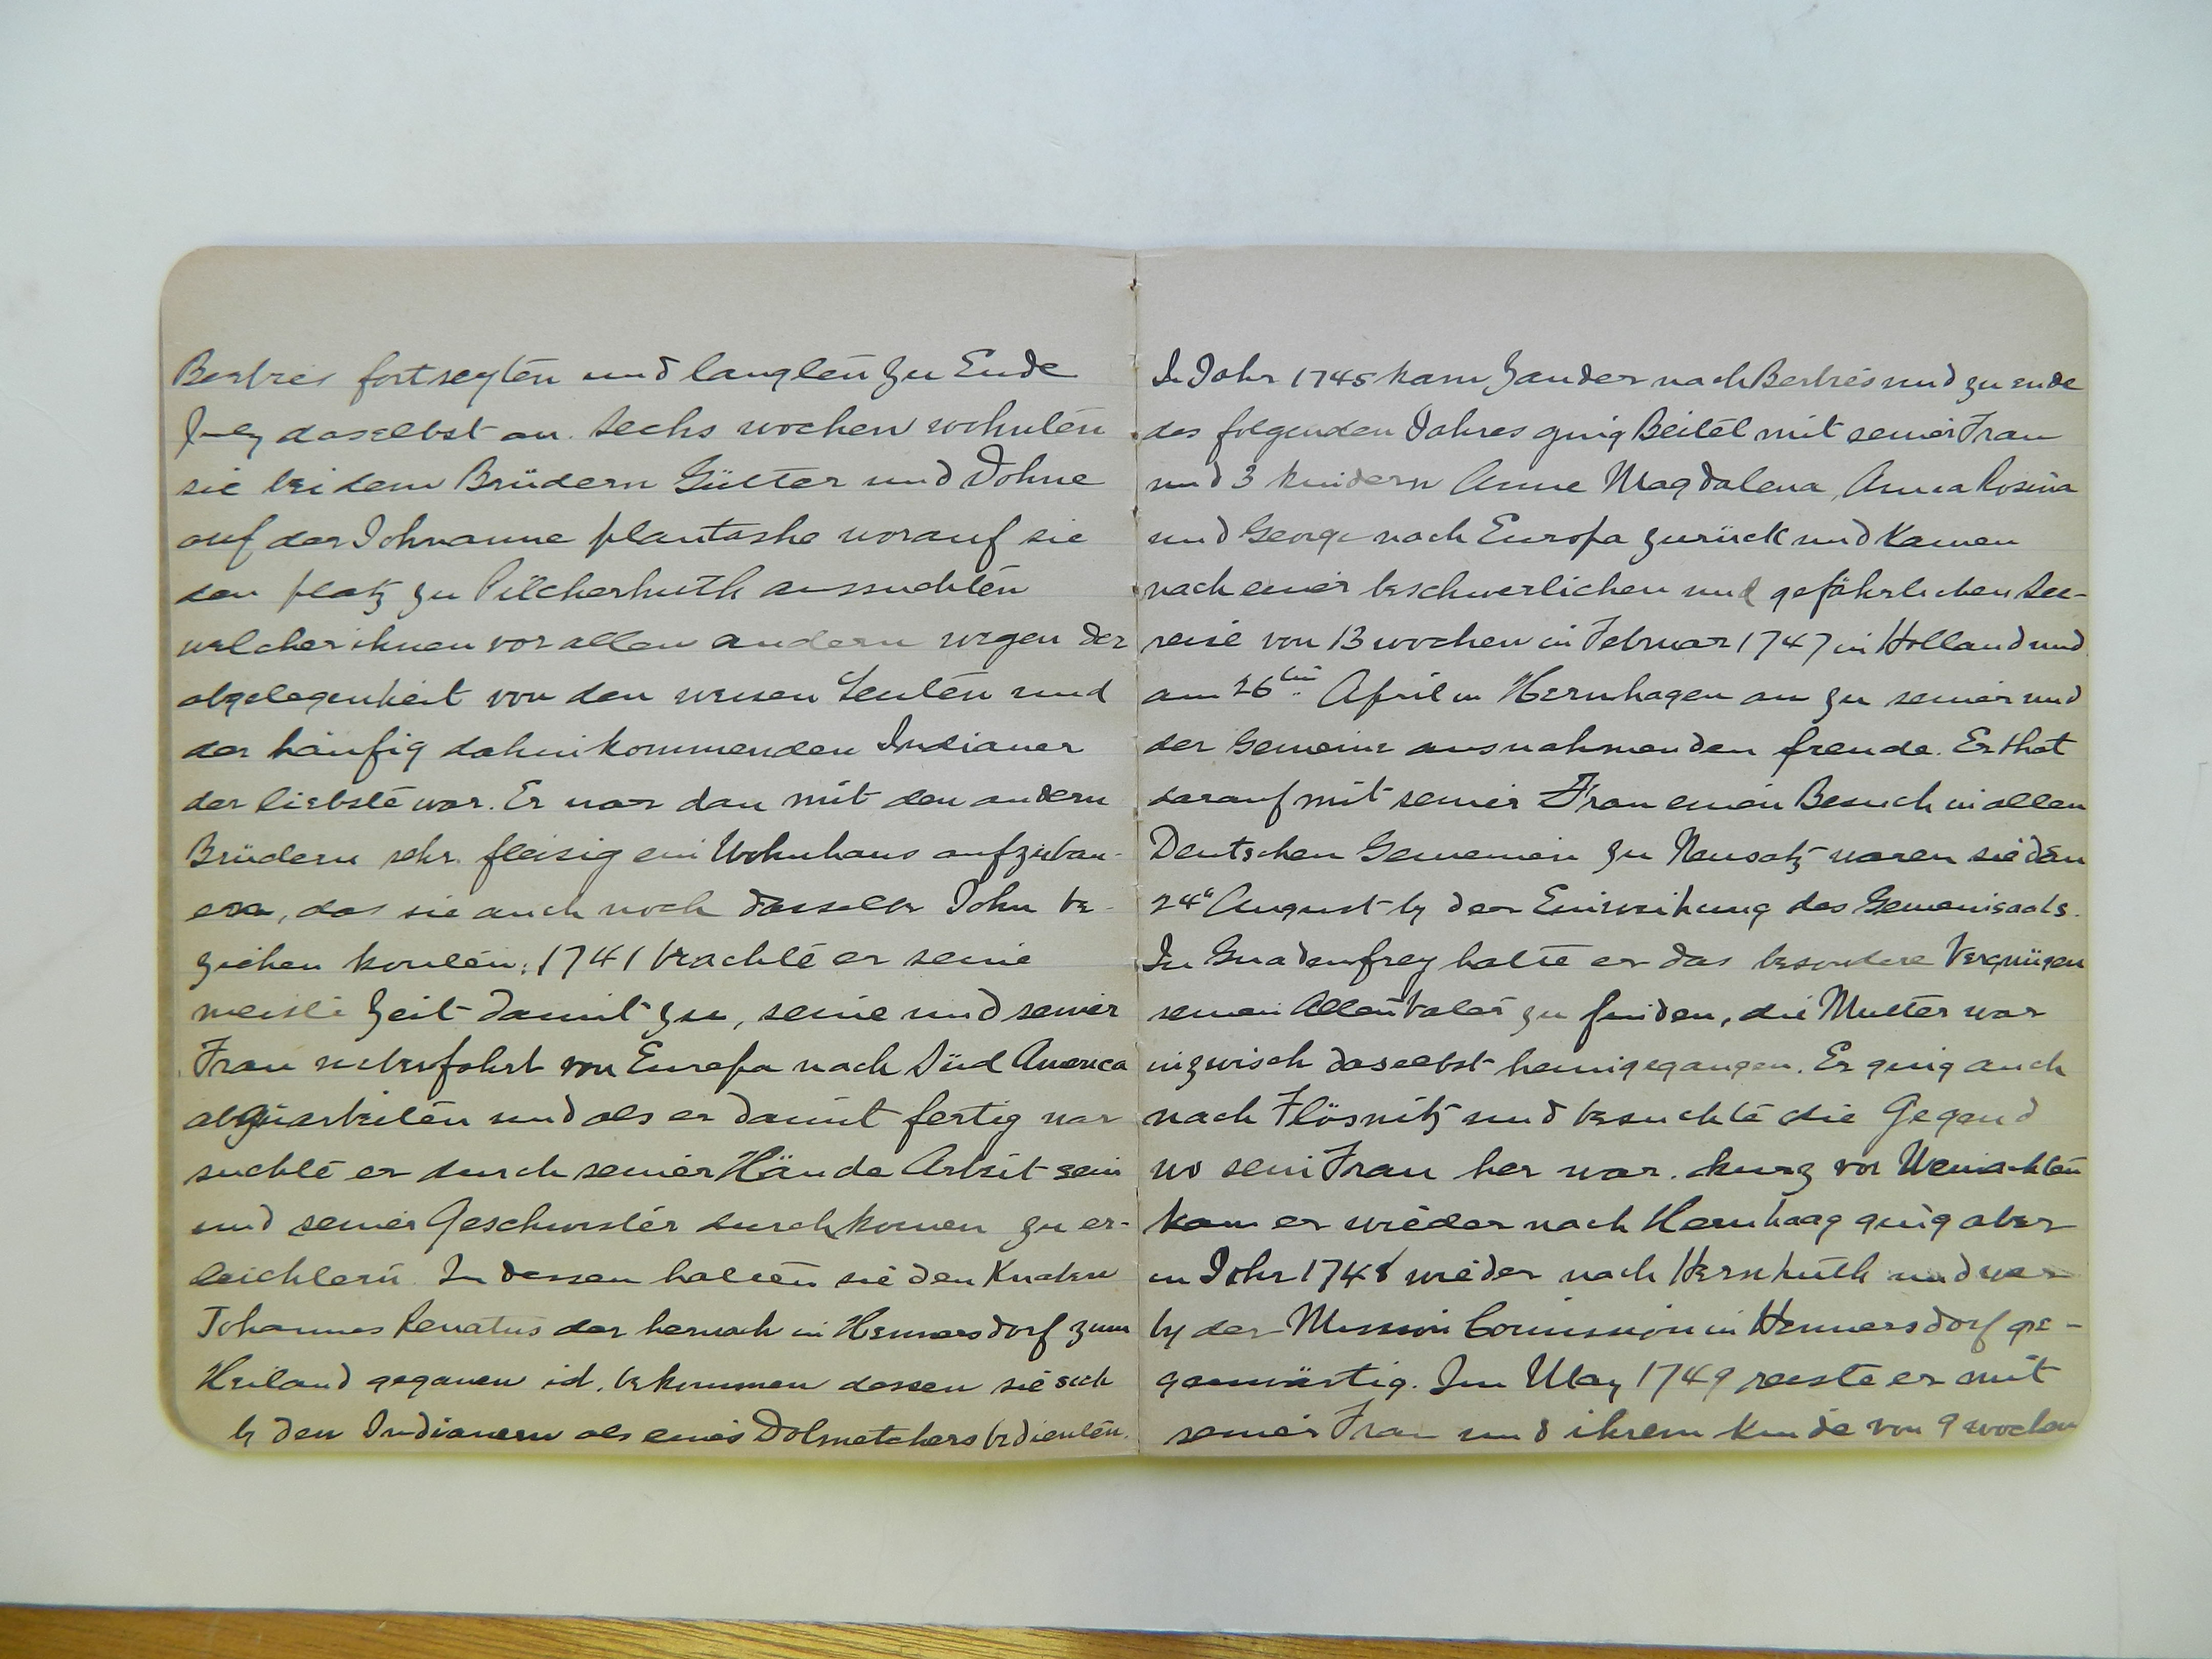 Berbies fortseyten und langten zu Ende
July daselbst an. Sechs wochen wohnten
sie bei denw Brüdern Gütter und Dohne
auf der Johnanne plantashe worauf sie
den platz zu Pilcherhuth aussuchten
welcher ihnen vor allen andern wegen der
abgelegenheit von den weisen Leuten und
der häufig dahinkommenden Indianer
der liebste war. Er war dan mit den andern
Brüdern sehr fleisig ein Wohnhaus aufzubau-
en, das sie auch noch dasselbe Johr be-
ziehen konten; 1741 brachte er seine
meiste Zeit damit zu, seine und seiner
Frau ueberfohrt von Europa nach Süd America
abzuarbeiten und als er damit fertig war
suchte er durch seiner Hände Arbeit sein
und seiner Geschwister durchkomen zu er-
leichtern. In dessen hatten sie den Knaben
Johannes Renatus der hernach in Hennersdorf zum
Heiland gegangen ist, bekommen dessen sie sich
by den Indianern als eines Dolmetchers bedienten.
In Johr 1745 kam Zander nach Berbies und zu ende
des folgenden Jahres ging Beitel mit seiner Frau
und 3 kindern Anne Magdalena, Anna Rosina
und George nach Europa zurück und kamen
nach einer beschwerlichen und gefährlichen See-
reise von 13 wochen in Februar 1747 in Holland und
am 26ten April in Hernhagen an zu seiner und
der Gemeine ausnahmenden freude. Er that
darauf mit seiner Frau einen Besuch in allen
Deutschen Gemeinen zu Neusatz waren sie dan
24t August by der Einweihung des Gemeinsaals.
In Gnadenfrey hatte er das besondere Vergnügen
seinen Alten Vater zu finden, die Mutter war
inzwisch daselbst heimgegangen. Er ging auch
nach Flösnitz und besuchte die Gegend
wo sein Frau her war. kurz vor Weinachten
kam er wieder nach Hernhaag ging aber
in Johr 1748 wieder nach Hernhuth und war
by der Mission Comission in Hennersdorf ge-
genwärtig. Im May 1749 reiste er mit
seiner Frau und ihrem Kinde von 9 wochen